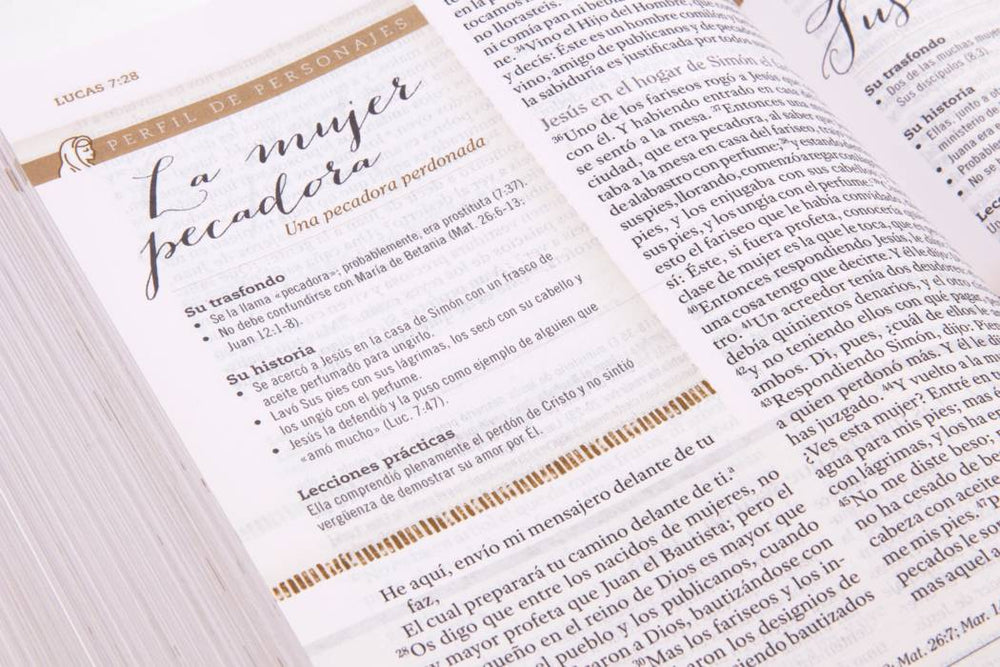 LUCAS 7:28
PERFIL DE PERSONAJES
La mujer
pecadora
Una pecadora perdonada
Su trasfondo
• Se la llama «pecadora»; probablemente, era prostituta (7:37).
• No debe confundirse con María de Betania (Mat. 26:6-13:
Juan 12:1-8).
Su historia
• Se acercó a Jesús en la casa de Simón con un frasco de
aceite perfumado para ungirlo.
• Lavó Sus pies con sus lágrimas, los secó con su cabello y
los ungió con el perfume.
• Jesús la defendió y la puso como ejemplo de alguien que
«amó mucho» (Luc. 7:47).
Lecciones prácticas
Ella comprendió plenamente el perdón de Cristo y no sintió
vergüenza de demostrar su amor por Él.
He aquí, envío mi mensajero delante de tu
faz,
El cual preparará tu camino delante de ti.ª
28 Os digo que entre los nacidos de mujeres, no
y mayor profeta que Juan el Bautista; pero el
queño en el reino de Dios es mayor que
el pueblo y los publicanos, cuando
aron a Dios, bautizándose con
30 Mas los fariseos y los in-
aron los designios de
bautizados
en la p
tocamos
no llorasteis.
ni comía pan ni bebí
ne. 34 Vino el Hijo del Hom
y decís: Éste es un hombre comi
vino, amigo de publicanos y de peca
la sabiduría es justificada por todos
Jesús en el hogar de Simón el
36 Uno de los fariseos rogó a Jesús
con él. Y habiendo entrado en casa
se sentó a la mesa. 37 Entonces una
ciudad, que era pecadora, al saber
taba a la mesa en casa del fariseo, tra
de alabastro con perfume; 38 y estando
sus pies, llorando, comenzó a regar con
pies, y los enjugaba con sus cabell
sus pies, y los ungía con el perfume.
esto el fariseo que le había convida
sí: Éste, si fuera profeta, conocería
clase de mujer es la que le toca, que e
40 Entonces respondiendo Jesús, le di
una cosa tengo que decirte. Y él le di
tro. 41 Un acreedor tenía dos deudores
debía quinientos denarios, y el otro
42 y no teniendo ellos con qué pagar
ambos. Di, pues, ¿cuál de ellos l
43 Respondiendo Simón, dijo: Pien
a quien perdonó más. Y él le di
has juzgado. 44 Y vuelto a la m
¿Ves esta mujer? Entré en
agua para mis pies; mas é
con lágrimas, y los ha e
45 No me diste beso;
no ha cesado de be
cabeza con aceite
me mis pies.
pecados le so
mas aquel a
Mat. 26:7; Mar.
Sus
Su trasfondo
• Dos de las muchas muje
Sus discípulos (8.3).
Su historia
• Ellas, junto a o
misterio de
• Juana era
• Probable
• No se
Lec